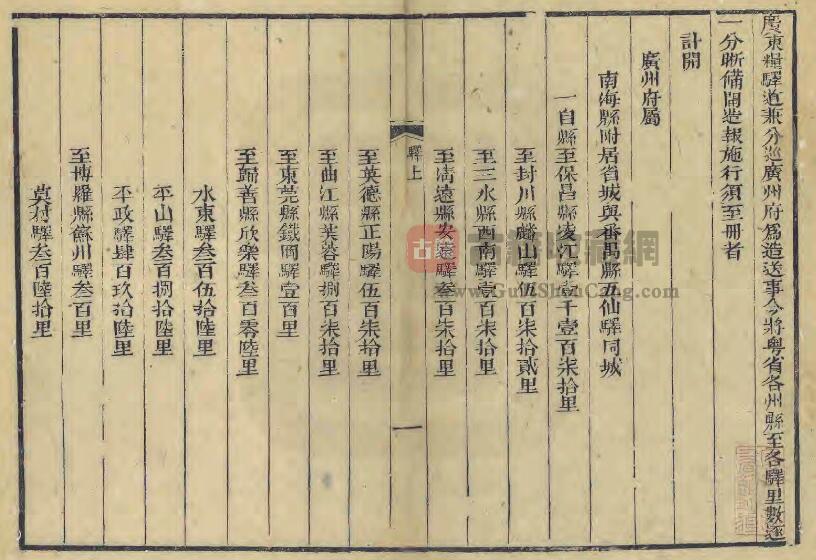 廣東糧驛道兼分巡廣州府爲造送事今將粤省各州縣至各驛里數逐
一分晰備開造報施行須至冊者
計開
廣州府屬
南海縣附居省城與番禺縣五仙驛同城
一自縣至保昌縣凌江驛壹千壹百柒拾里
至封川縣麟山驛伍百柒拾貳里
至三水縣西南驛壹百柒拾里
至清遠縣安遠驛叁百柒拾里
驛上
一
至英德縣正陽驛伍百柒拾里
至曲江縣芙蓉驛捌百柒拾里
至東莞縣鐵岡驛壹百里
至歸善縣欣樂驛叁百零陸里
水東驛叁百伍拾陸里
平山驛叁百捌拾陸里
平政驛肆百玖拾陸里
至博羅縣蘇州驛叁百里
莫村驛叁百陸拾里
古籍收藏網
www.GuJiShouCang.com